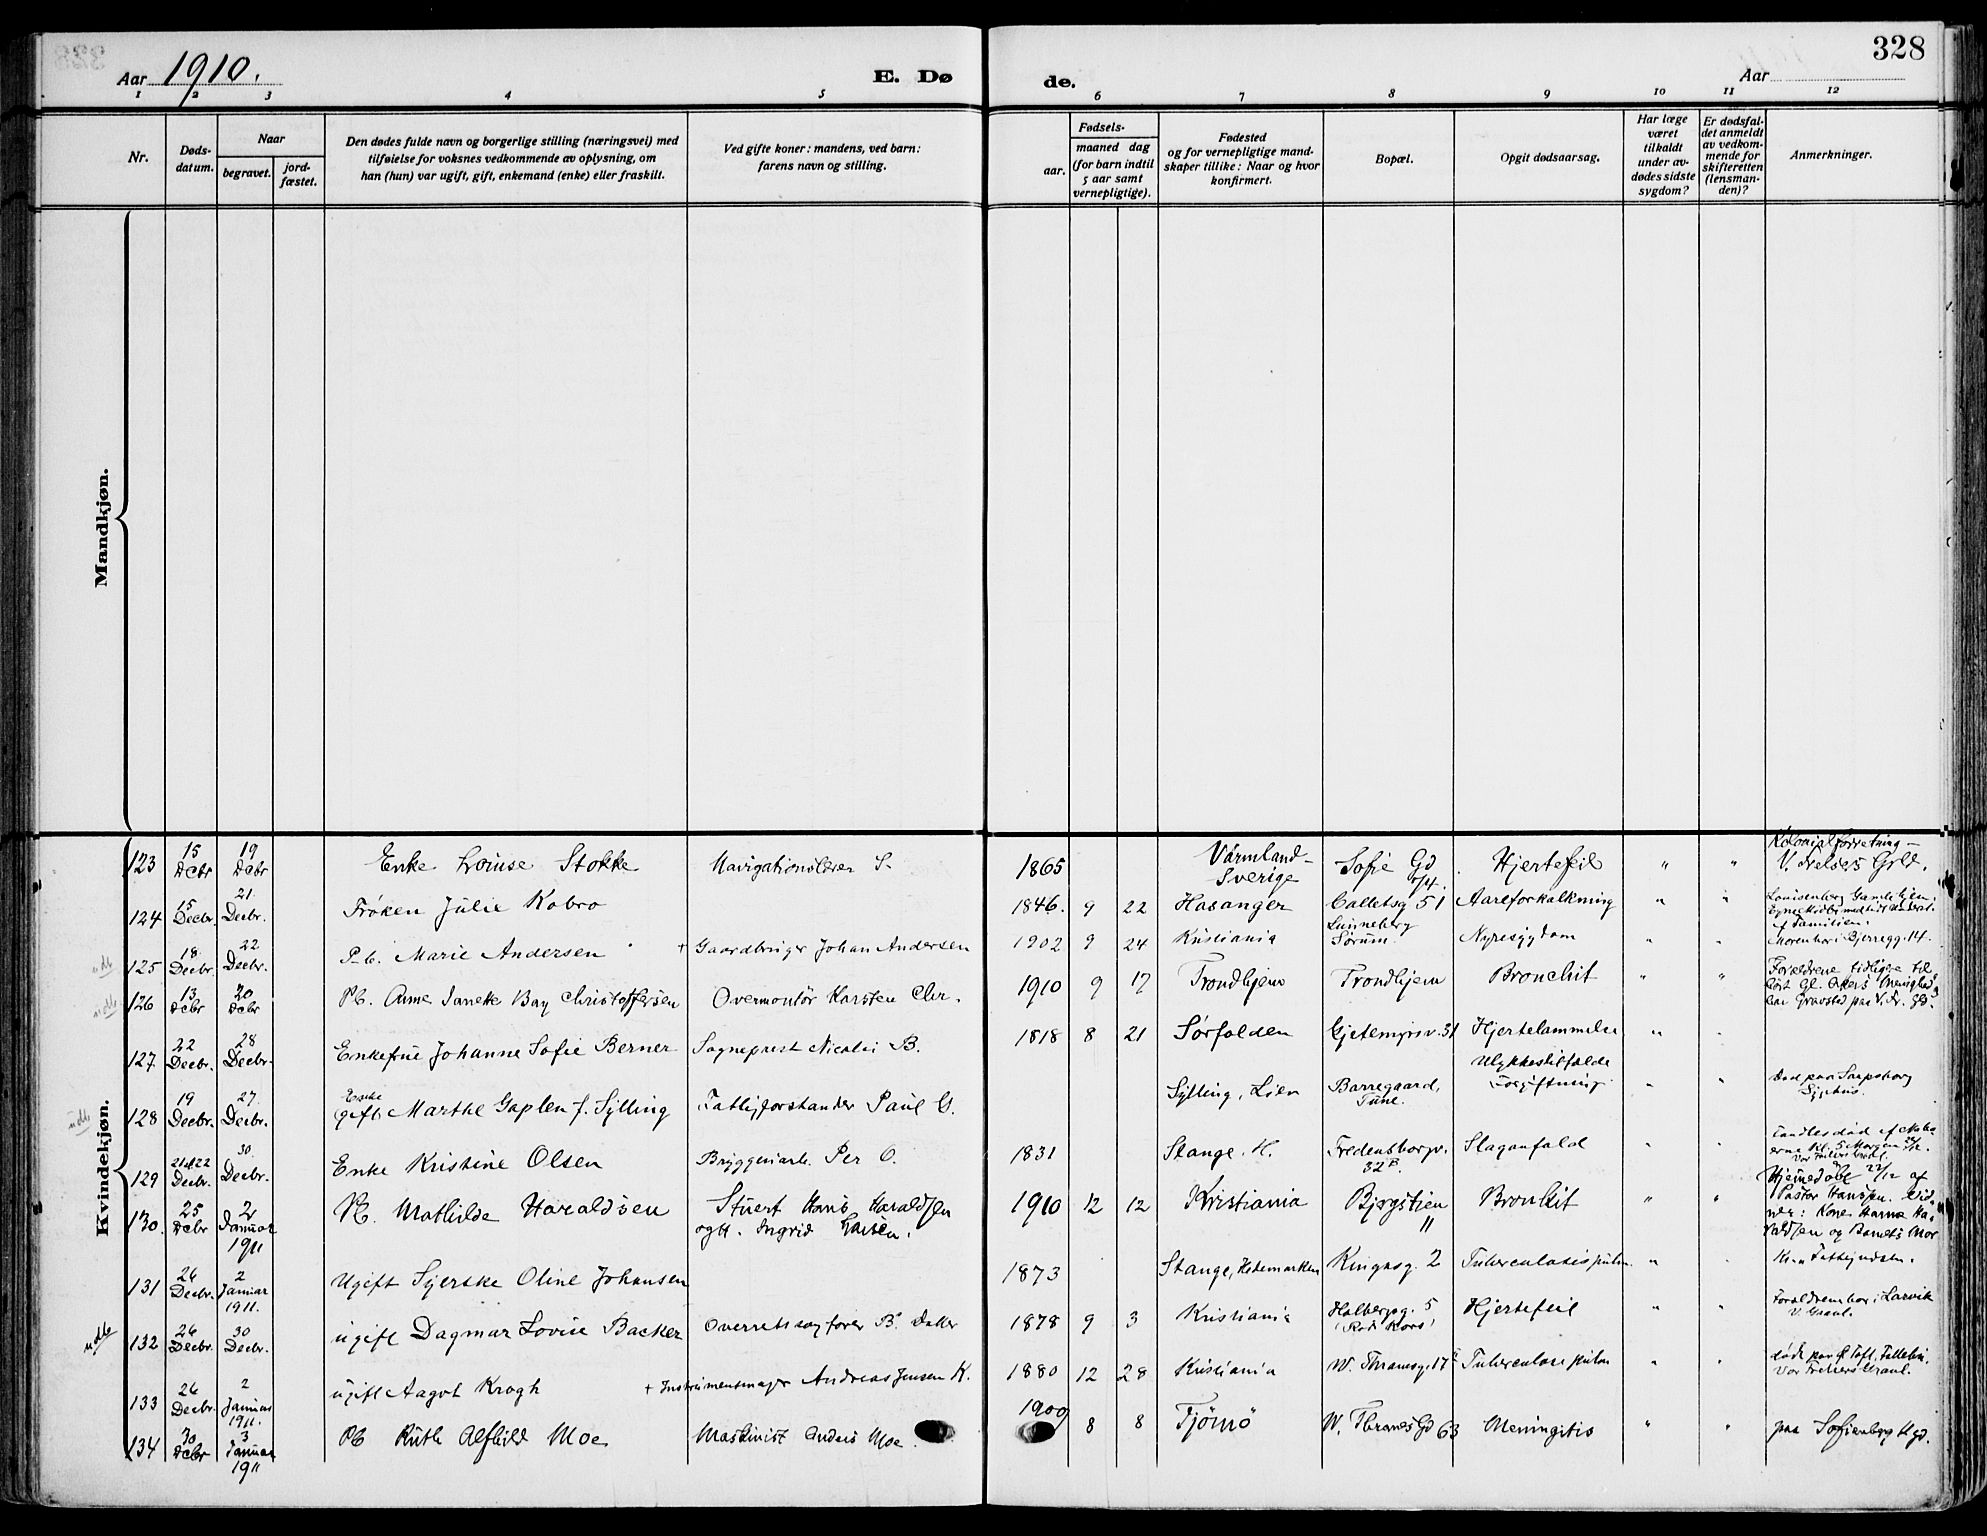 Aar 1910.
E. Dø
de.
Aar
328
1 2 3 4 5 6 7 8 9 10 11 12
Nr.
Døds-
datum.
Naar
begravet.
jord-
fæstet.
Den dødes fulde navn og borgerlige stilling (næringsvei) med
tilføielse for voksnes vedkommende av oplysning, om
han (hun) var ugift, gift, enkemand (enke) eller fraskilt.
Ved gifte koner: mandens, ved barn:
farens navn og stilling.
Fødsels-
aar.
maaned dag
(for barn indtil
5 aar samt
vernepligtige).
Fødested
og for vernepligtige mand-
skaper tillike: Naar og hvor
konfirmert.
Bopæl.
Opgit dødsaarsag.
Har læge
været
tilkaldt
under av-
dødes sidste
sygdom?
Er dødsfal-
det anmeldt
av vedkom-
mende for
skifteretten
(lensman-
den)?
Anmerkninger.
Mandkjøn.
Kvindekjøn.
123 15 Dcbr 19 Dcbr Enke Louise Stokke Navigationslærer S. 1865 Värmland - Sverige Sofie Gd Hjertefeil " " Kolonialforretning -
124 15 Decbr. 21 Decbr. Frøken Julie Kobro 1846. 9 22 Hasanger Calletsg 51 Aareforkalkning " "
125 18 Decbr. 22 Decbr. P.b. Marie Andersen + Gaardbruger Johan Andersen 1902 9 24 Kristiania Sørum Nyresygdom " " Moren bor i Bjerregg. 14.
126 13 Dcbr 20 Dcbr Pb. Anne Janette Bay Christoffersen Overmontör Karsten Chr. 1910 9 17 Trondhjem Trondhjem Bronchit " " Forældrene tidligere til
Gl. Akers Menighed
Gravsted paa V. Fr. gd.
127 22 Decbr. 28 Decbr. Enkefrue Johanne Sofie Berner Sogneprest Nicolai B. 1818 8 21 Sørfolden Gjetemyrsv. 31 Hjertelammelse "
128 19 Decbr. 27. Decbr. Enke (gift) Marthe Gaplen f. Sylling Fattigforstander Paul G. Sylling, Lier Borregaard, Tune. Ulykkestilfælde Forgiftning " " Død paa Sarpsborg
Sygehus.
129 21 el 22 Decbr. 30. Decbr. Enke Kristine Olsen Bryggeriarb. Per O. 1831 Stange. H. Fredensborgv. 32B. Slaganfald " "
130. 25 Dcbr 2 Januar 1911 Pb. Mathilde Haraldsen Stuert Hans Haraldsen
og H. Ingrid Larsen. 1910 12 12 Kristiania Bjergstien 11 Bronkit " " Hjemedøbt 22/12 af
Pastor Hanssen.
131 26 Decbr. 2 Januar 1911. Ugift Sjerske Oline Johansen 1873 Stange, Hedemarken Kingosg. 2 Tuberculosis pulm. "
132 26 Decbr. 30 Decbr. ugift Dagmar Lovise Backer Overretssagfører B. 1878 9 3 Kristiania Holbergsg. 5 (Röd Kors) Hjertefeil " " Forældrene bor i Larvik
133 26 Decbr. 2 Januar 1911. ugift Aagot Krogh + Instrumentmager Andreas Jensen K. 1880 12 28 Kristiania W. Thranesg. 17 Tuberculose pulm " "
Vor Frelsers Gravl.
134 30 Dcbr 3 Januar 1911 Pb Ruth Alfhild Moe Maskinist Anders Moe. 1909 8 8 Tjømø W. Thranes Gd 63 Meningitis " " paa Sofienberg Kgd.